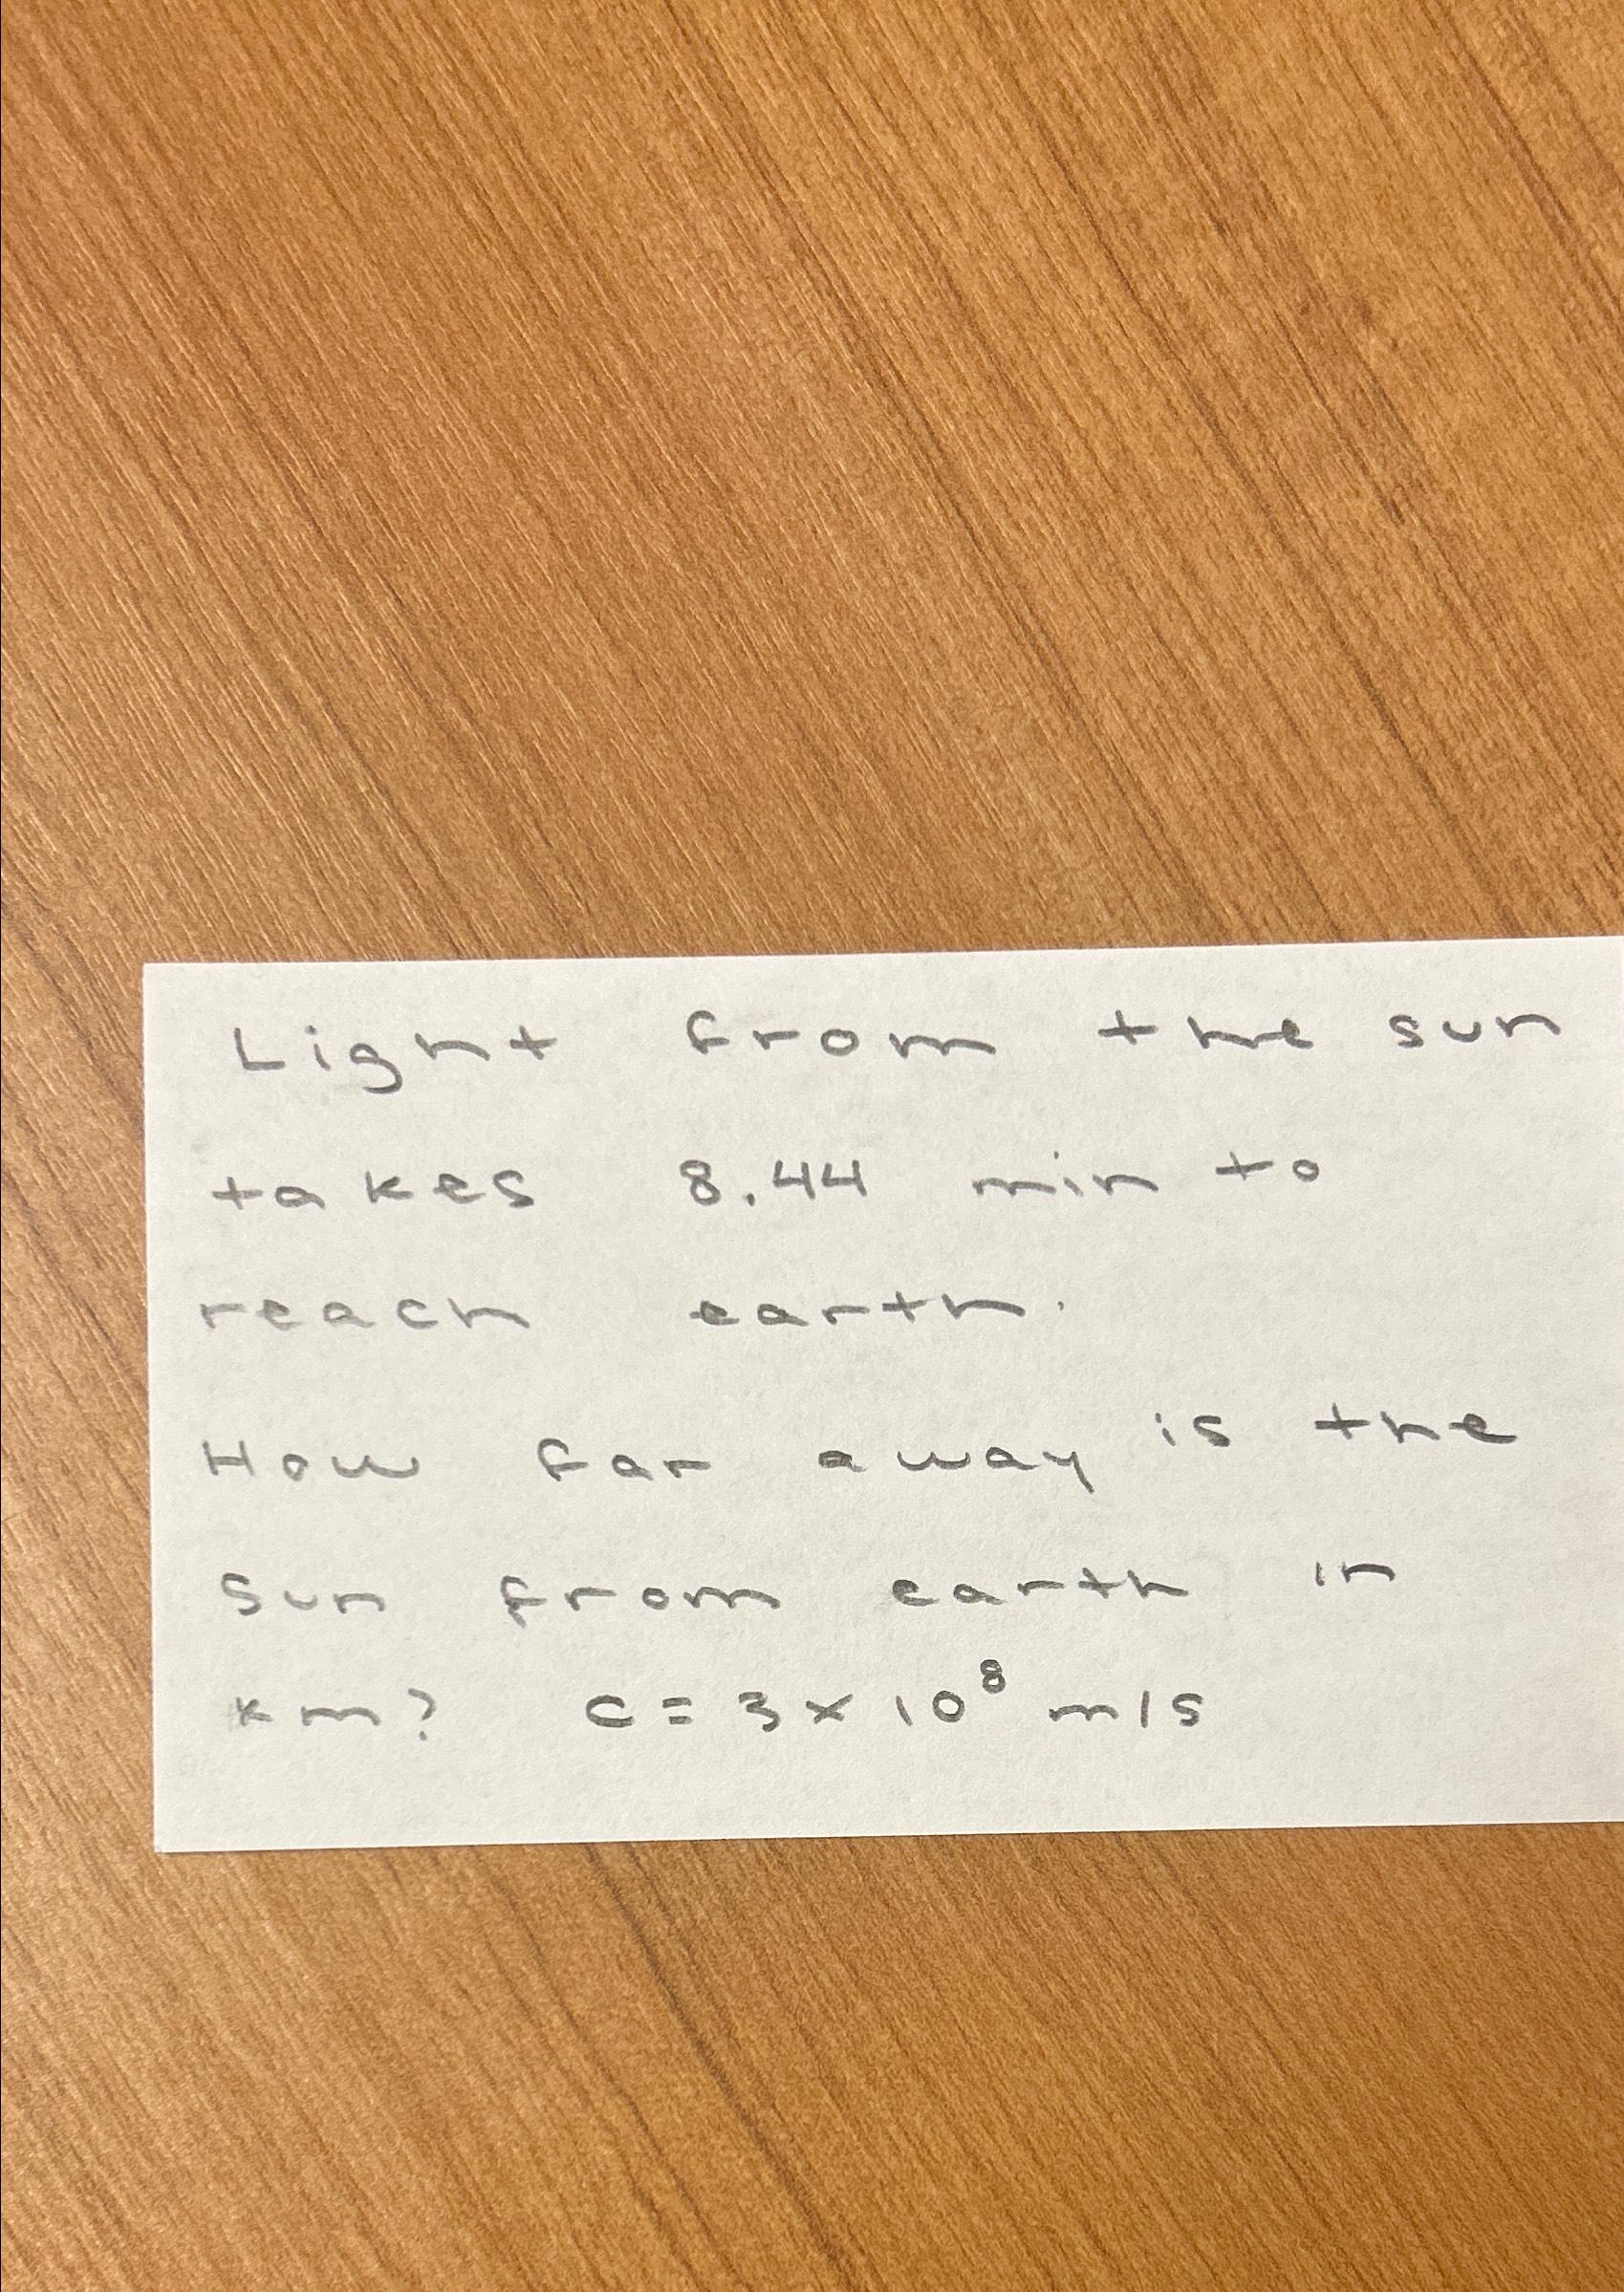 Light from the sun
takes 8.44 min to
reach earth.
How far away is the
Sun from earth in
km? C = 3 x 10⁸ m/s